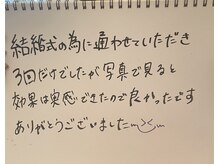 結婚式の為に通わせていただき
3回だけでしたが写真で見ると
効果は実感できたので良かったです
ありがとうございましたm(_ _)m